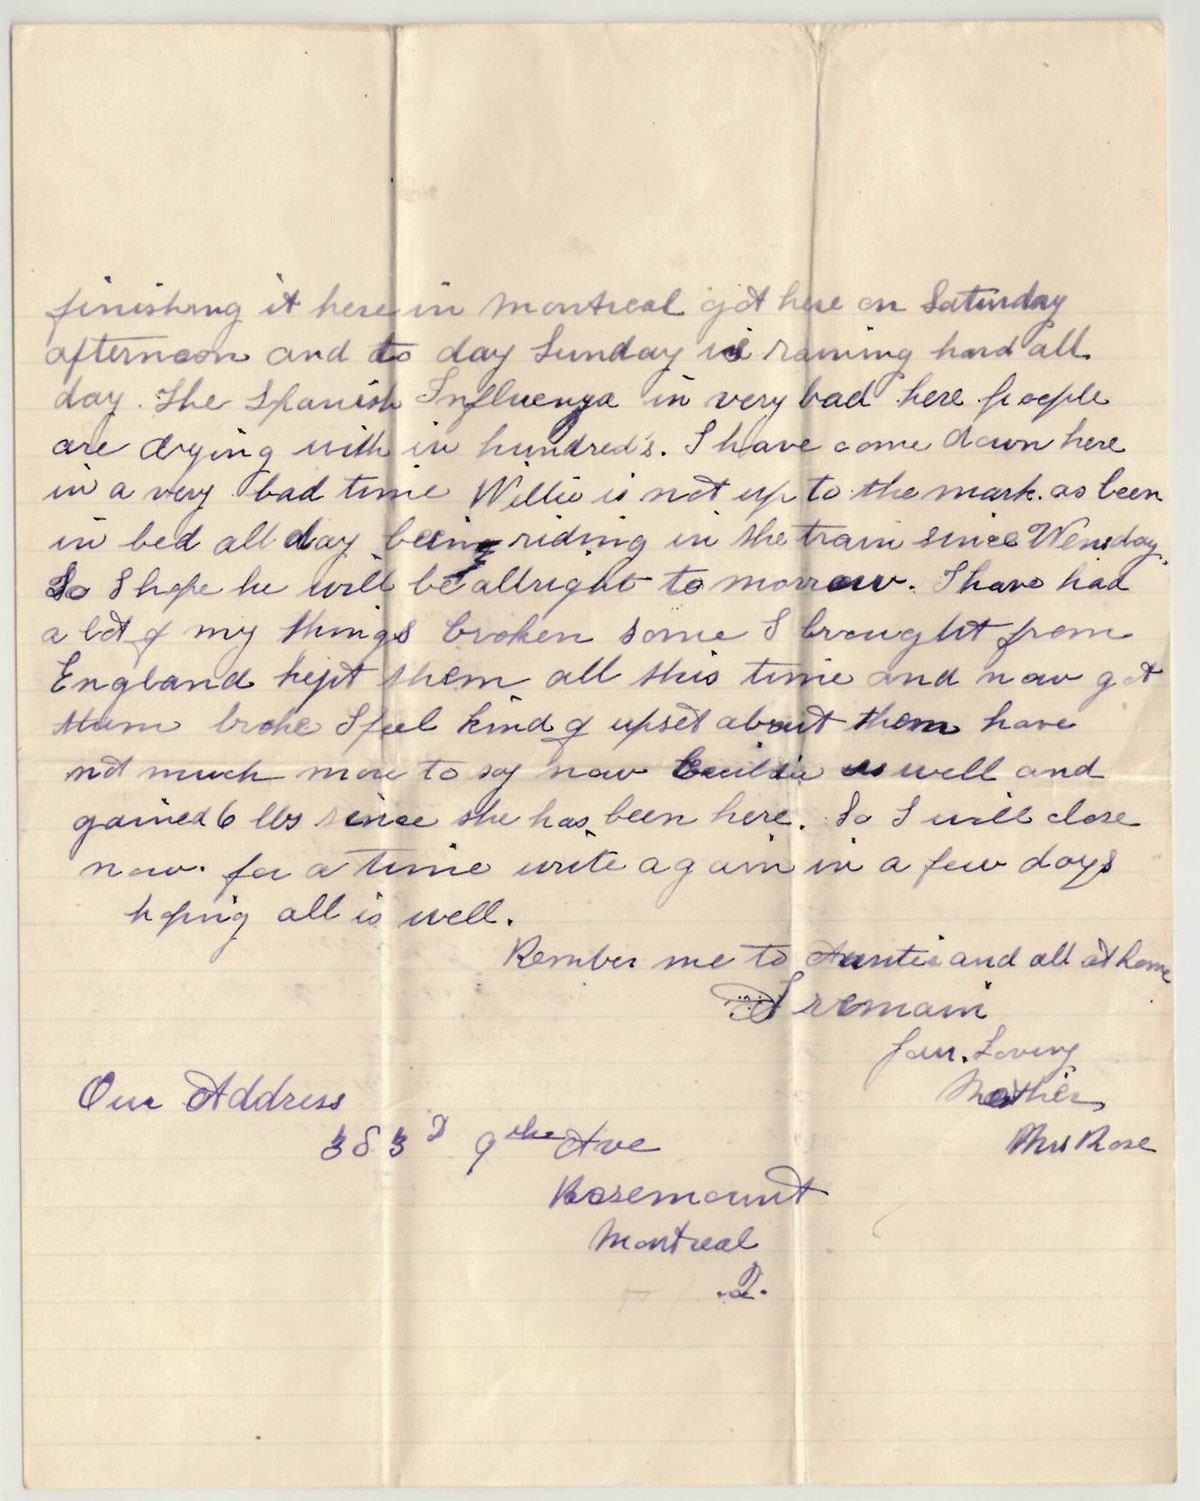 finishing it here in Montreal got here on Saturday
afternoon and to day Sunday is raining hard all
day. The Spanish Influenza in very bad here people
are dying with in hundred's. I have come down here
in a very bad time Willie is not up to the mark. as been
in bed all day being riding in the train since Wensday.
So I hope he will be allright to morrow. I have had
a lot of my things broken some I brought from
England kept them all this time and now got
them broke I feel kind of upset about them have
not much more to say now is well and
gained 6 lbs since she has been here. So I will close
now. for a time write again in a few days
hoping all is well.
Rember me to Auntie and all at home
I remain
Your. Loving
Mother
Mrs Rose
Our Address
383 9the Ave
Rosemount
Montreal
.Q.